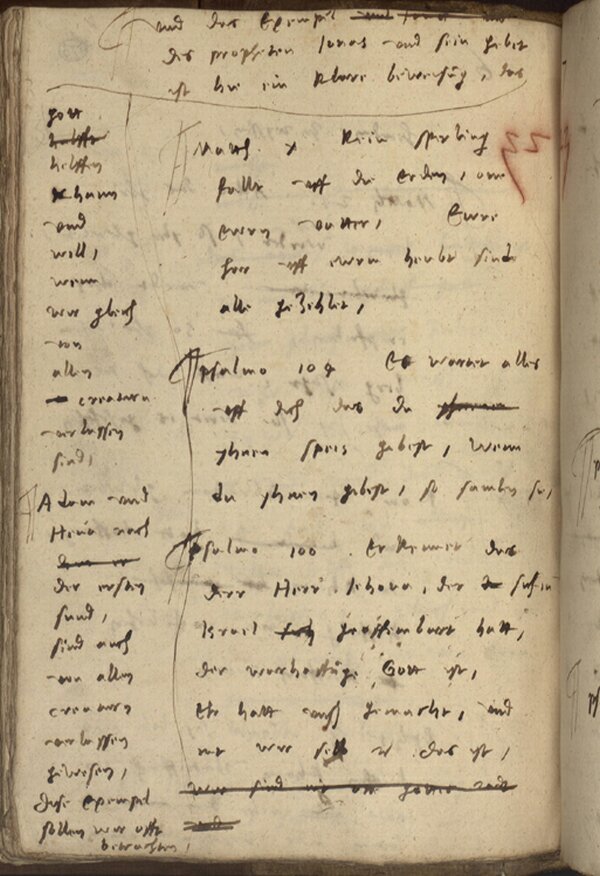 und das Exempel
des propheten Jonas und sein gebet
ist hie ein klare beweisung, das
gott
helffen
khann
und
will,
wenn
wir gleich
von
allen
creaturn
verlassen
sind,
Adam und
Heva nach
der ersten
sund,
sind auch
von allen
creaturn
verlassen
gewesen,
dise Exempel
sollen wir offt
betrachten,
Matth. x Kein sperling
fallt uff die Erden, one
Ewrn vatter, Ewre
har uff ewrm heubt sind
alle gezehlet,
psalmo 104 Es wartet alles
uff dich das du
yhnen speis gebest, wenn
du yhnen gebest, so samlen sie,
psalmo 100. Erkennet das
der Herr Jehova, der sich in
Israel geoffenbart hatt,
der warhafftige Gott ist,
Er hatt uns gemacht, und
nit wir selb
wir sind nit